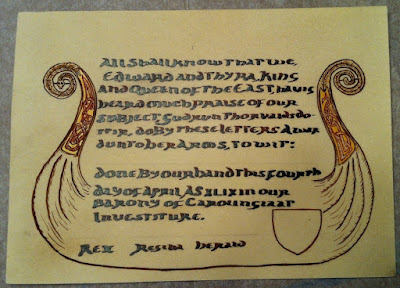 All Shall know that we,
Edward and Thyra, King
And Queen of the East havig
heard much praise of our
subject, Gudrun Thorvaldsdo
ttir, do By these letters Awar
d unto her Arms, to wit:
done By our hand this fourth
day of April AS XLIX in our
Barony of Carolingia at
Investiture.
Rex Regina Herald